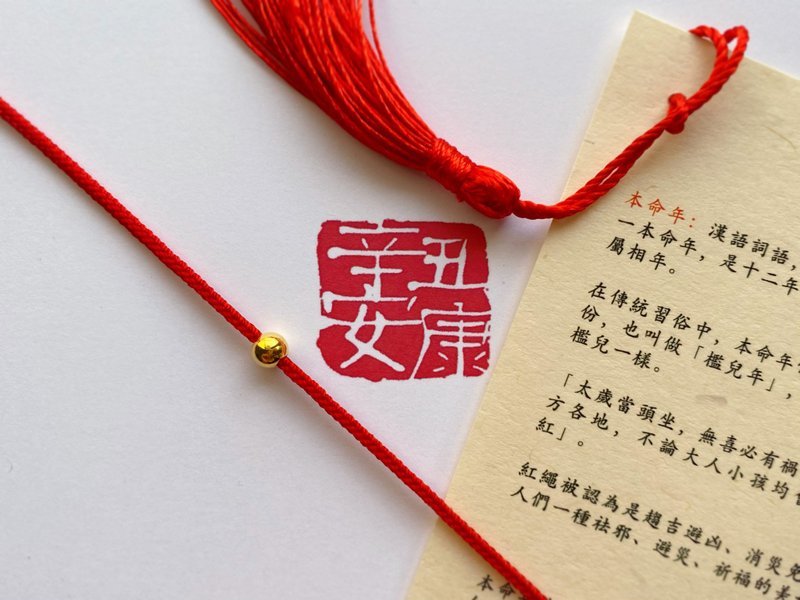 辛丑
安康
本命年：漢語詞語，
一本命年，是十二年
屬相年。
在傳統習俗中，本命年
份，也叫做「檻兒年」，
檻兒一樣。
「太歲當頭坐，無喜必有禍
方各地，不論大人小孩均
紅」。
紅繩被認為是趨吉避凶、消災免
人們一種祛邪、避災、祈福的美
本命